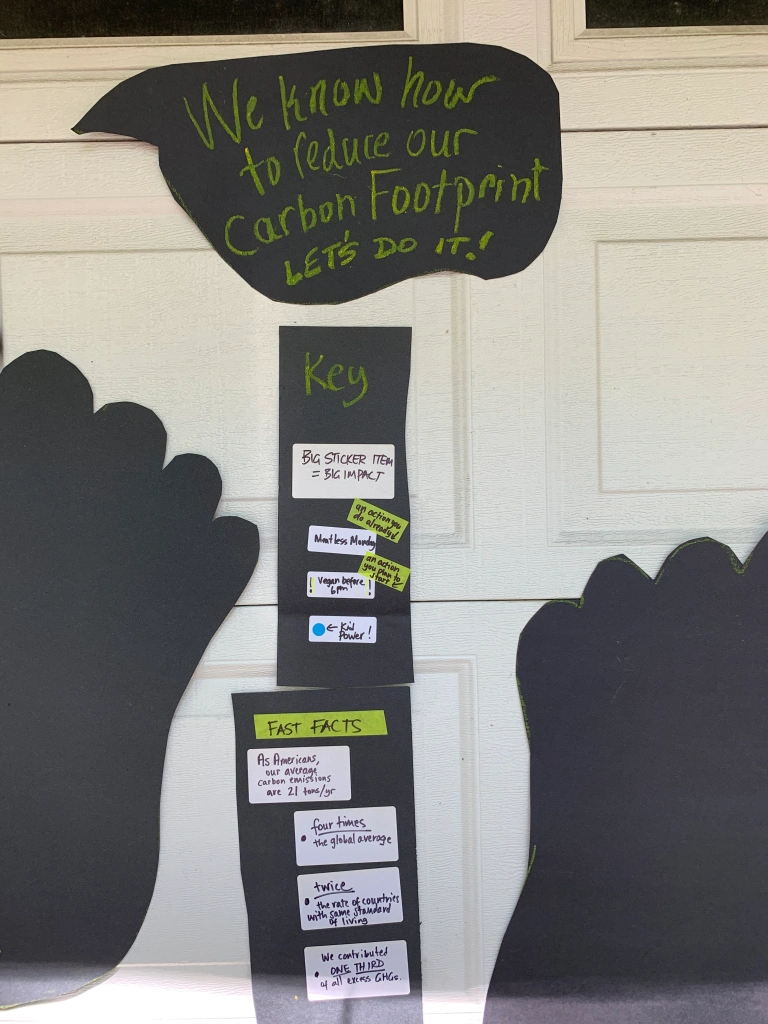 We know how
to reduce our
Carbon Footprint
LET'S DO IT!
Key
BIG STICKER ITEM
= BIG IMPACT
an action you
do already
Meatless Monday
an action
you plan to
start
! Vegan before !
6pm
← Kid
Power!
FAST FACTS
As Americans,
our average
carbon emissions
are 21 tons/yr
four times
• the global average
twice
• the rate of countries
with same standard
of living
We contributed
• ONE THIRD
of all excess GHGs.